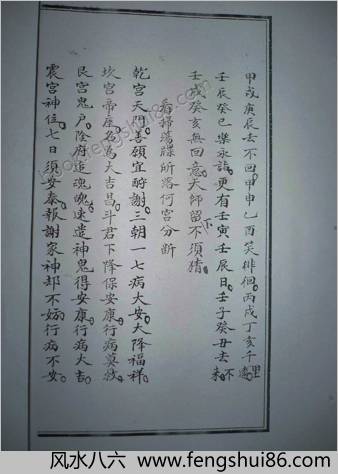 甲戌庚辰去不回。甲申乙酉笑徘徊。丙戌丁亥千里遠。
壬辰癸巳樂永諧。更有壬寅壬辰日。壬子癸丑去不來。
壬戌癸亥無回意。天師留下不須猜。
看掃蕩牒所落何宮分斷
乾宮天門善願宜酧謝。三朝一七病大安。大降福祥。
坎宮帝座名為大吉昌。斗君下降保安康。行病莫救。
艮宮鬼戶。陰府追魂魄。速遣神鬼得安康。行病大吉。
震宮神位。七日須安泰。報謝家神却不妨。行病不安。
风水八六 www.fengshui86.com